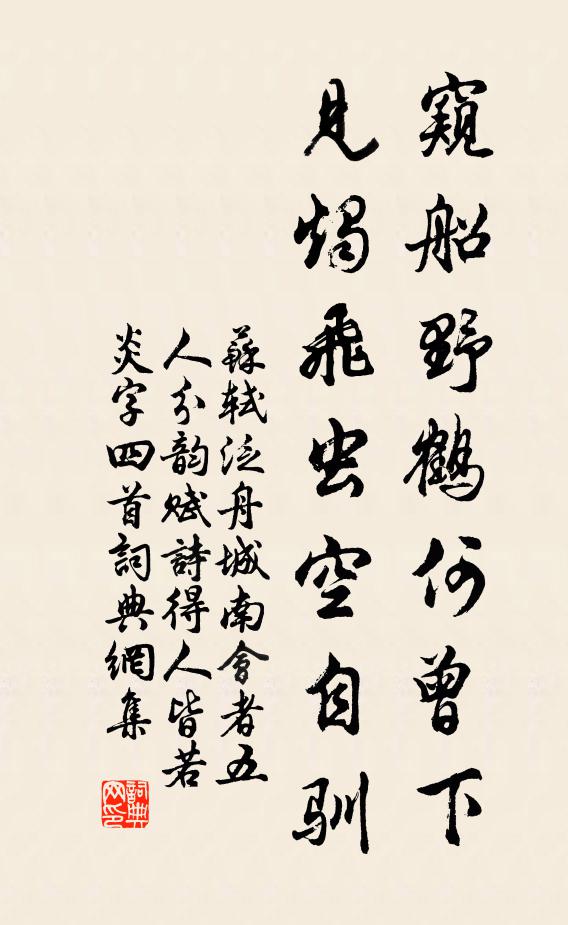 窺船野鶴何曾下
見燭飛虫空自馴
蘇軾泛舟城南會者五
人分韵賦詩得人皆若
炎字四首詞典網集
詞典网印